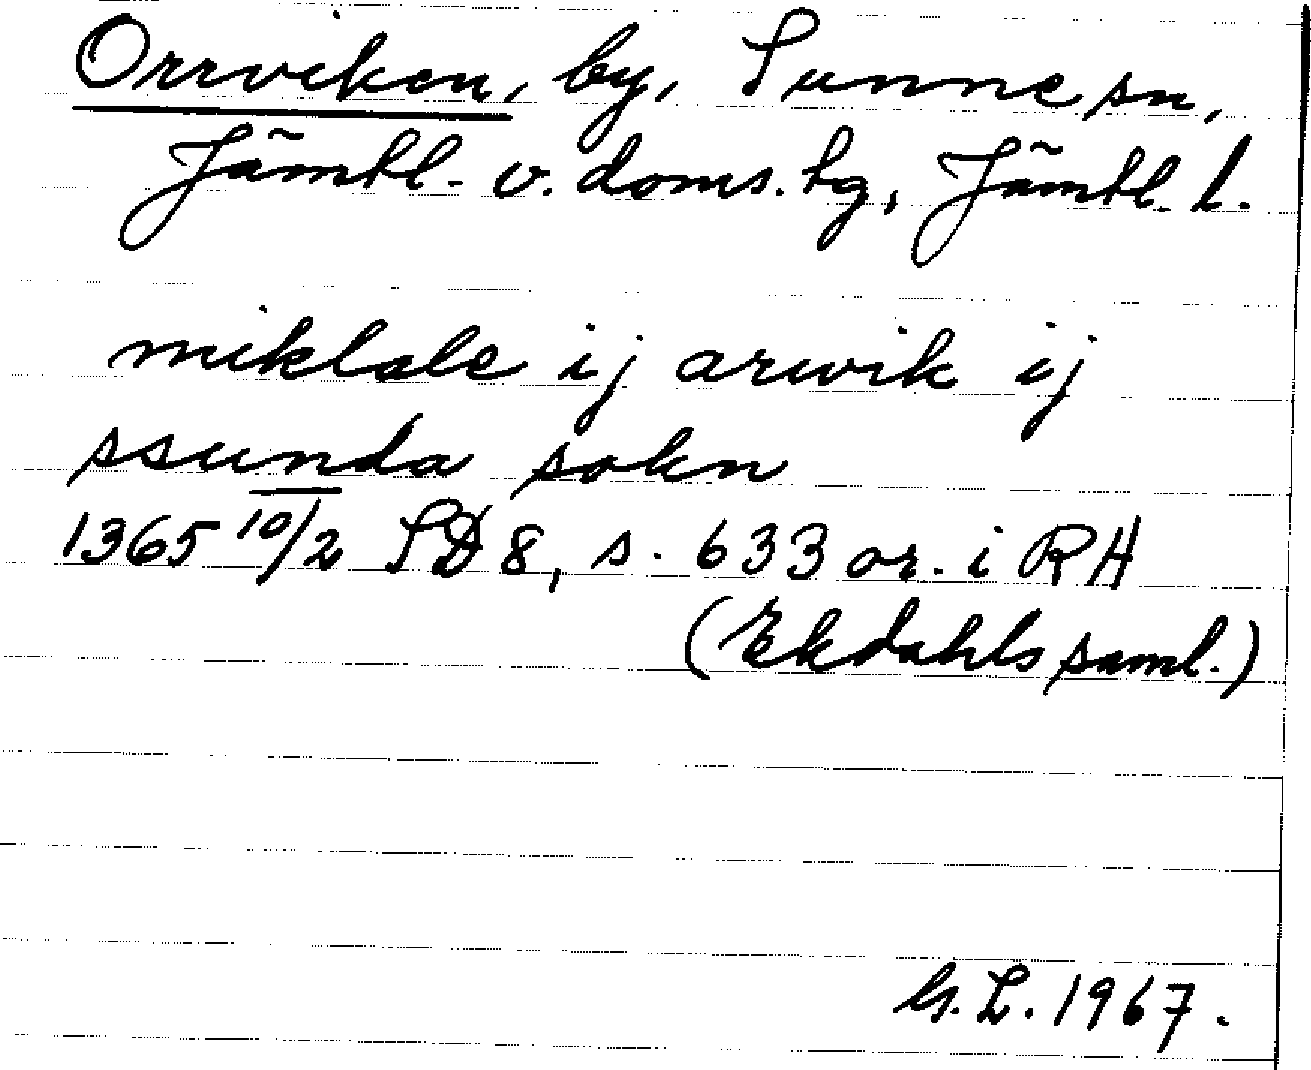 Orrviken, by, Sunne sn,
Jämtl. v. doms. hg, Jämtl. l.
miklale ij arwik ij
ssunda sokn
1365 10/2 SD 8, s. 633 or. i RA
(Ekdahls saml.)
G.L. 1967.